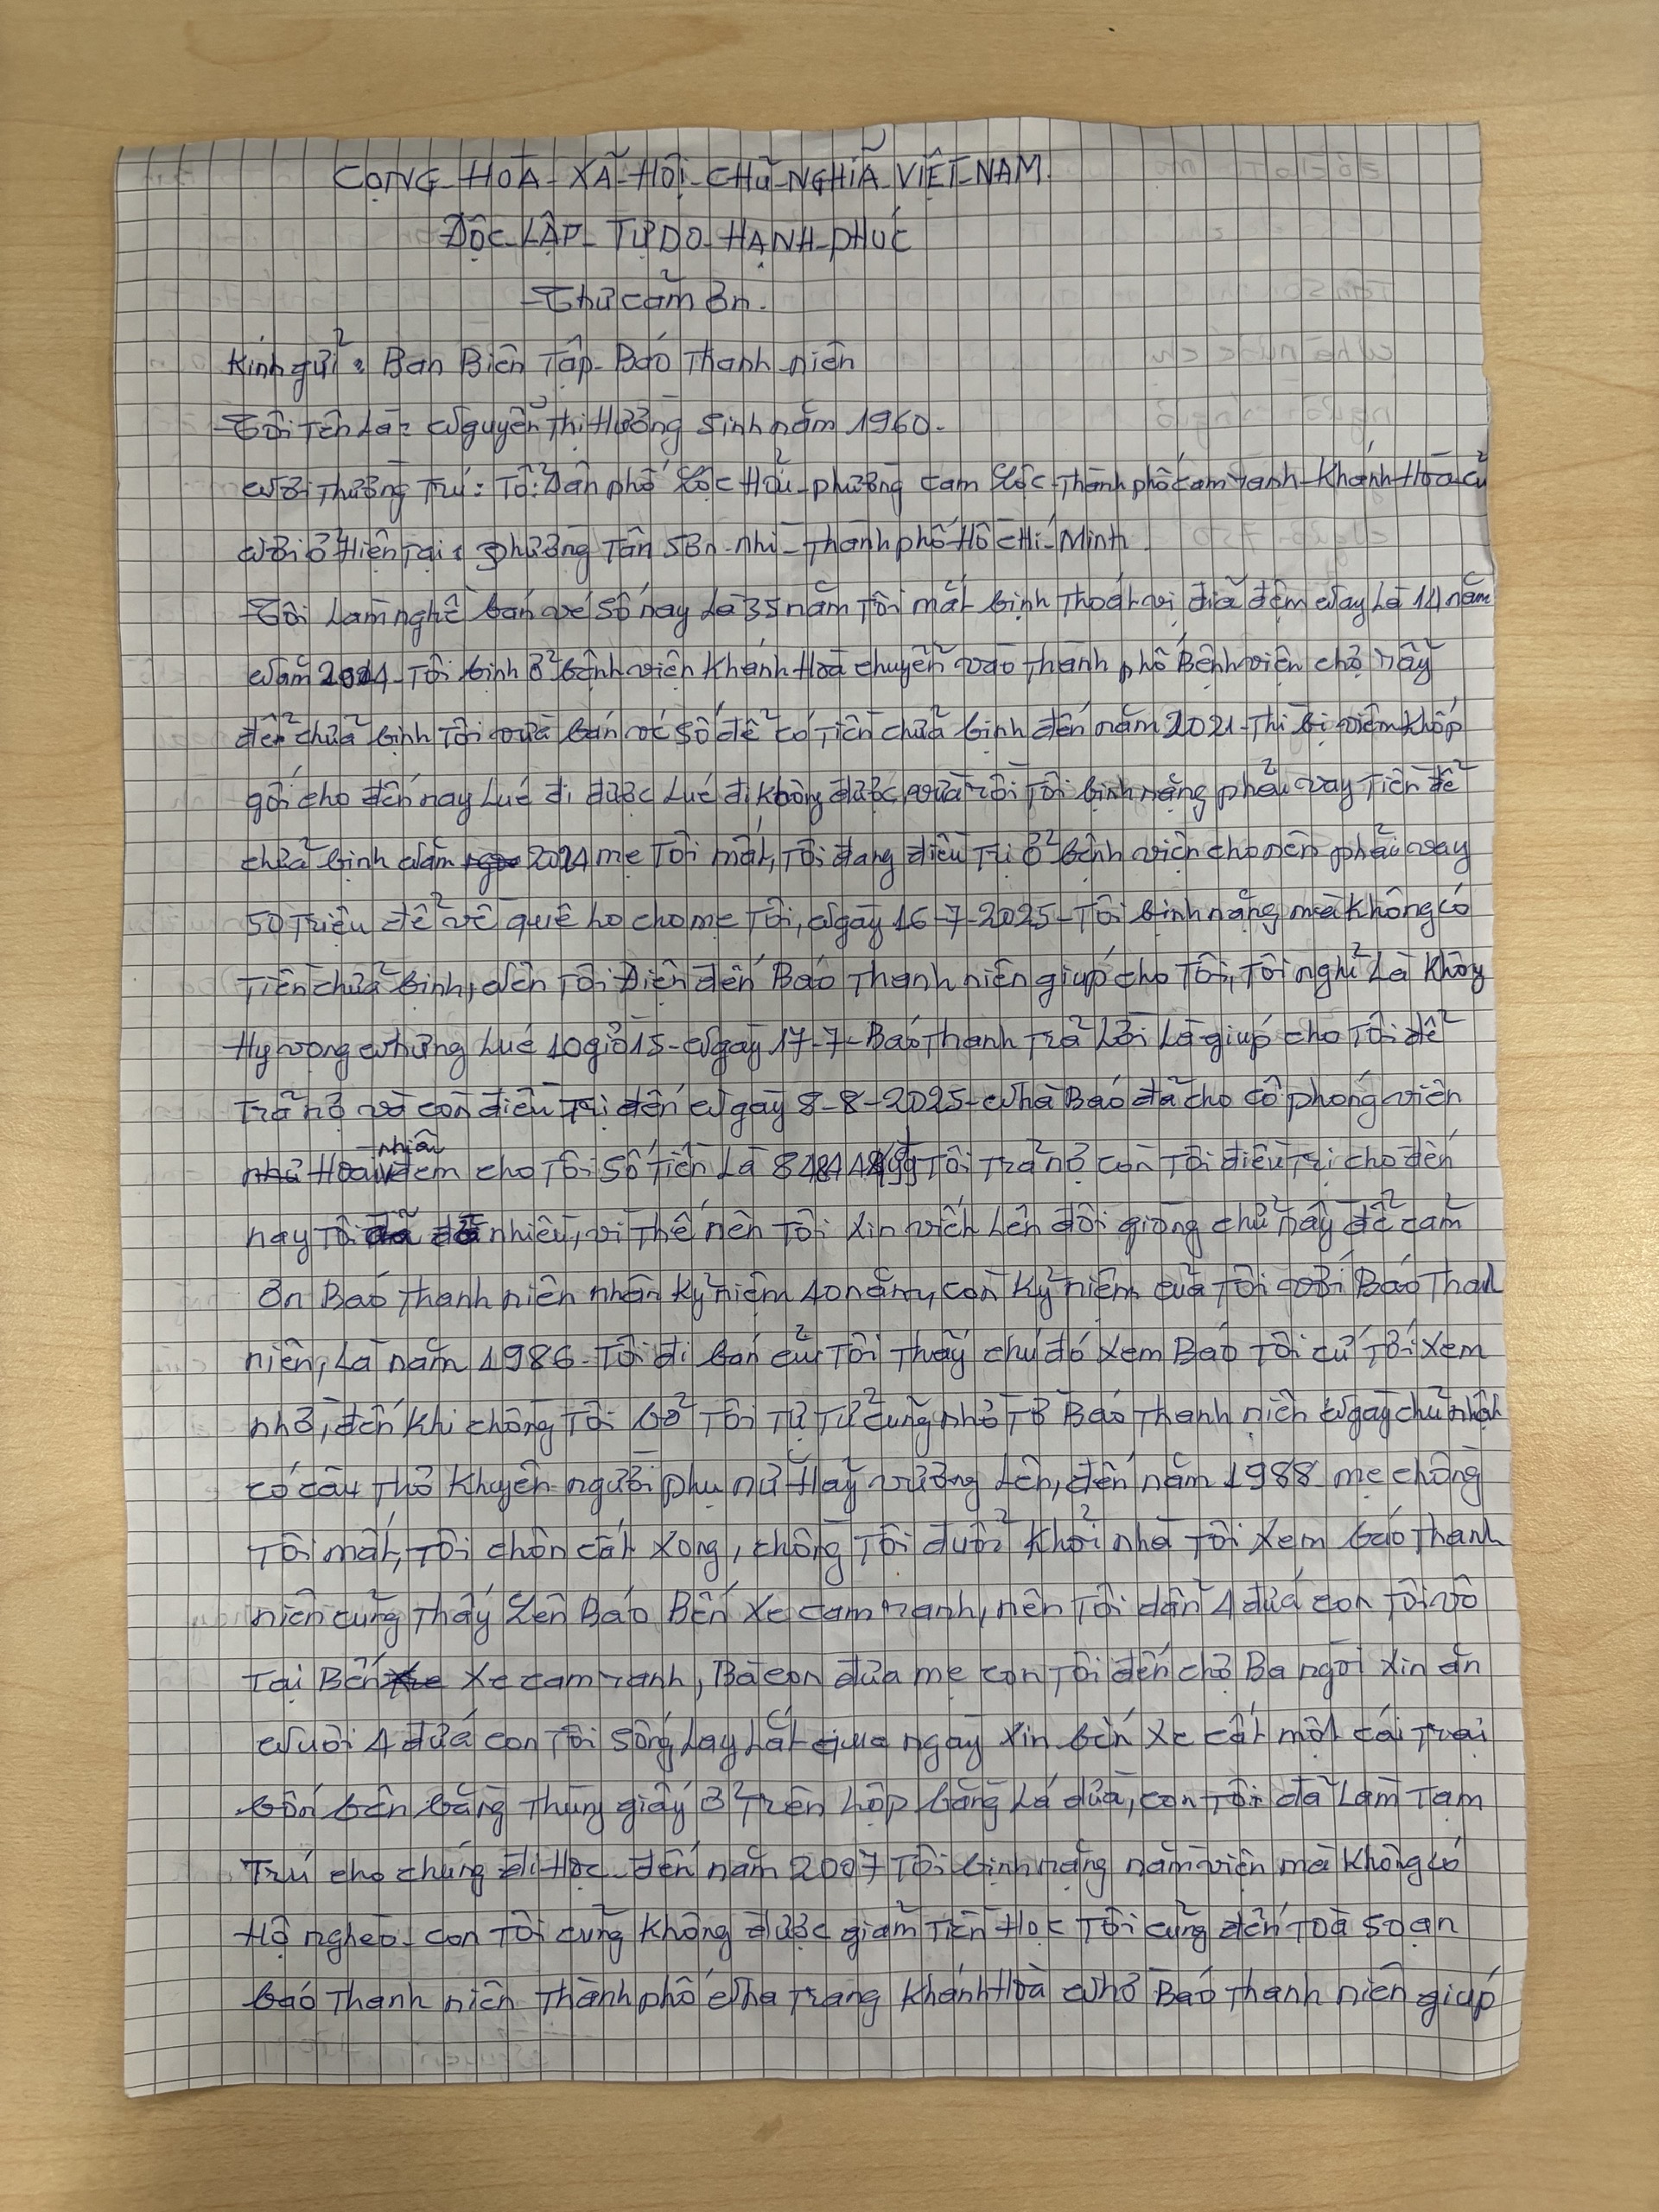 CỌNG HOÀ XÃ HỘI CHŨ NGHIÃ VIỆT NAM
ĐỘC LẬP TỰ DO HẠNH PHÚC
Thư cảm ơn.
Kính gửi: Ban Biên Tập Báo Thanh niên
Tôi Tên Là: Nguyễn Thị Hường Sinh năm 1960.
Nơi Thường Trú: Tổ: Dân phố Lộc Hải phường cam Lộc Thành phố cam ranh Khánh Hoà cũ
Nơi ở Hiện Tại: Phường Tân Sơn nhì Thành phố Hồ CHí Minh
Tôi Làm nghề bán vé Số nay Là 35 năm Tôi mắt bịnh Thoát vị điã đệm Nay Là 14 năm
Năm Tôi bịnh ở bệnh viện Khánh Hoà chuyển vào Thành phố Bệnh viện chợ rẫy
để chữa bịnh Tôi vừa bán vé số để có Tiền chữa bịnh đến năm 2021 Thì bị viêm Khớp
gối cho đến nay Lúc đi được Lúc đi không được, vừa rồi Tôi bịnh nặng phải vay Tiền để
chữa bịnh Năm 2024 mẹ Tôi mất, Tôi đang điều Trị ở bệnh viện cho nên phải vay
50 Triệu để về quê lo cho mẹ Tôi, Ngày 16-7-2025 Tôi bịnh nặng mà Không có
Tiền chữa bịnh, Nên Tôi Điện đến Báo Thanh niên giúp cho Tôi, Tôi nghĩ Là Không
Hy vọng Nhưng Lúc 10 giờ 15 Ngày 17-7 Báo Thanh Trả Lời Là giúp cho Tôi để
Trả nợ và còn điều Trị đến Ngày 8-8-2025 Nhà Báo đã cho cô phóng viên
đem cho Tôi Số Tiền Là Tôi Trả nợ còn Tôi điều Trị cho đến
nay Tôi đỡ nhiều, vì Thế nên Tôi Xin viết Lên đôi giòng chữ nầy để cảm
ơn Báo Thanh niên nhân Kỷ niệm 40 năm, còn Kỷ niệm của Tôi với Báo Thanh
niên, Là năm 1986 Tôi đi bán củi Tôi Thấy chú đó Xem Báo Tôi cứ Tới Xem
nhờ, đến Khi chồng Tôi bỏ Tôi Tự Tử cũng nhờ Tờ Báo Thanh niên Ngày chủ nhật
có câu Thơ Khuyên người phụ nữ Hãy vương Lên, đến năm 1988 mẹ chồng
Tôi mất, Tôi chôn cất Xong, chồng Tôi đuổi Khỏi nhà Tôi Xem báo Thanh
niên cũng Thấy Lên Báo Bến Xe cam ranh, nên Tôi dẫn 4 đứa con Tôi vô
Tại Bến Xe cam ranh, Bà con đưa mẹ con Tôi đến chợ Ba ngòi Xin ăn
Nuôi 4 đứa con Tôi Sống Lay Lắt qua ngày Xin bến Xe cất một cái Trại
bốn bên bằng Thùng giấy ở Trên Lợp bằng Lá dừa, con Tôi đã Làm Tạm
Trú cho chúng đi Học đến năm 2007 Tôi bịnh nặng nằm viện mà Không có
Hộ nghèo con Tôi cũng Không được giảm Tiền Học Tôi cũng đến Toà Soạn
báo Thanh niên Thành phố Nha Trang Khánh Hoà Nhờ Báo Thanh niên giúp